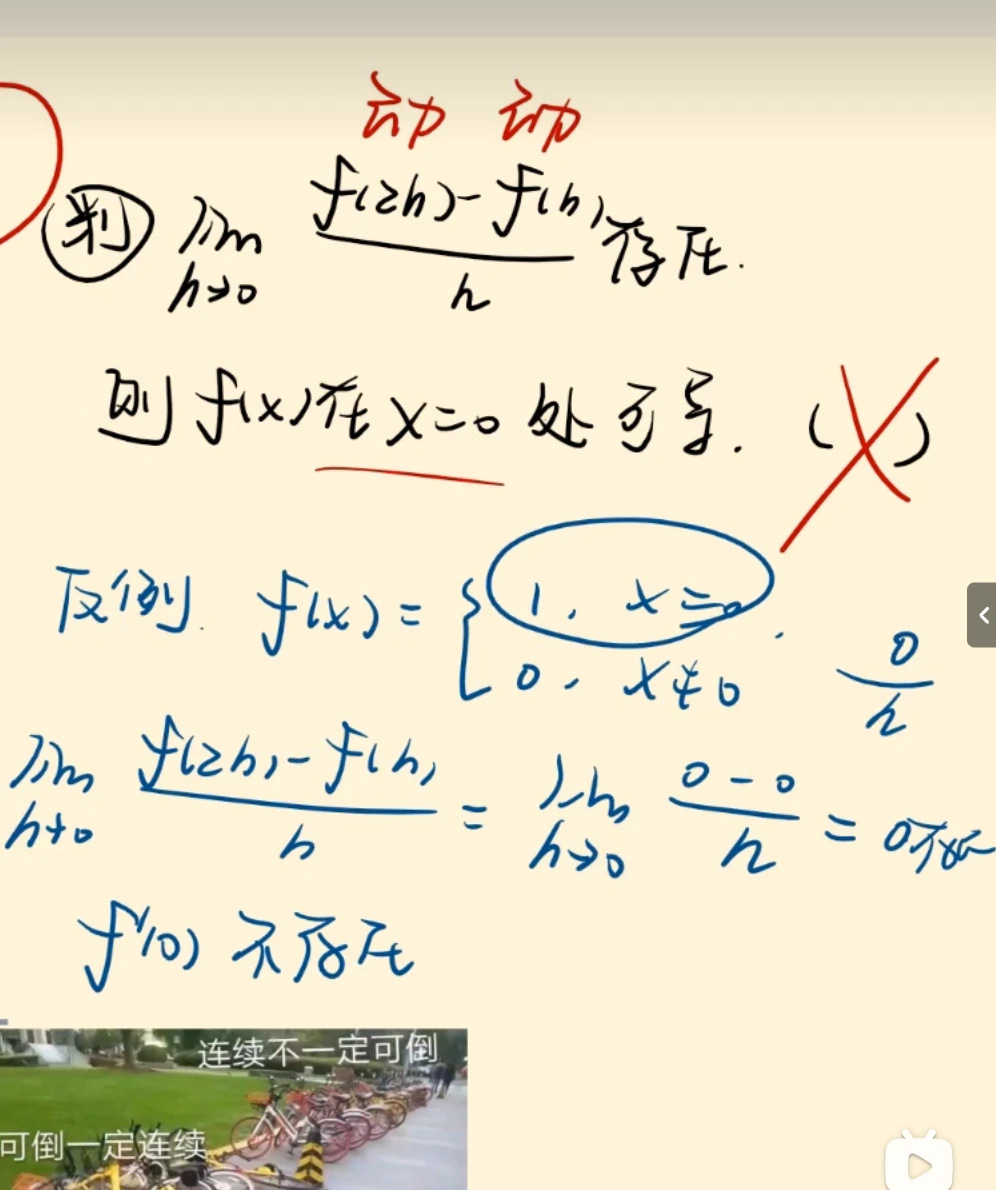 动 动
判 lim h→0 f(2h)-f(h) / h 存在.
则 f(x)在 x=0 处可导. (X)
反例. f(x) = { 1, x=0 .
0, x≠0 0/h
lim h→0 f(2h)-f(h) / h = lim h→0 0-0 / h = 0存在
f'(0) 不存在
连续不一定可倒
可倒一定连续